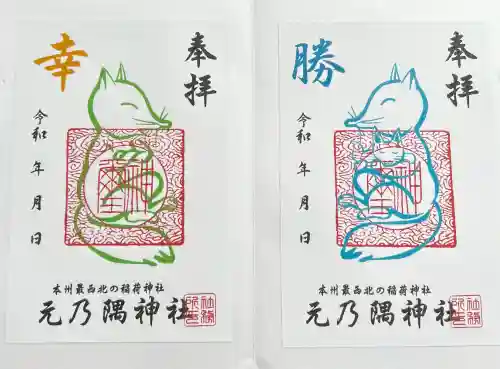 奉拝
幸
令和 年 月 日
本州最西北の稲荷神社
元乃隅神社
奉拝
勝
令和 年 月 日
本州最西北の稲荷神社
元乃隅神社